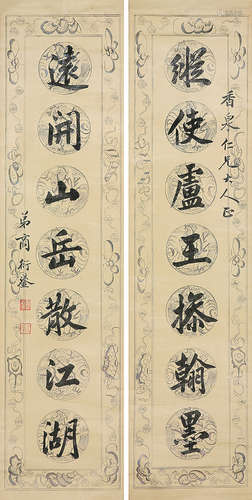 縱使盧王操翰墨
香泉仁兄大人正
遠開山岳散江湖
弟商衍鎏